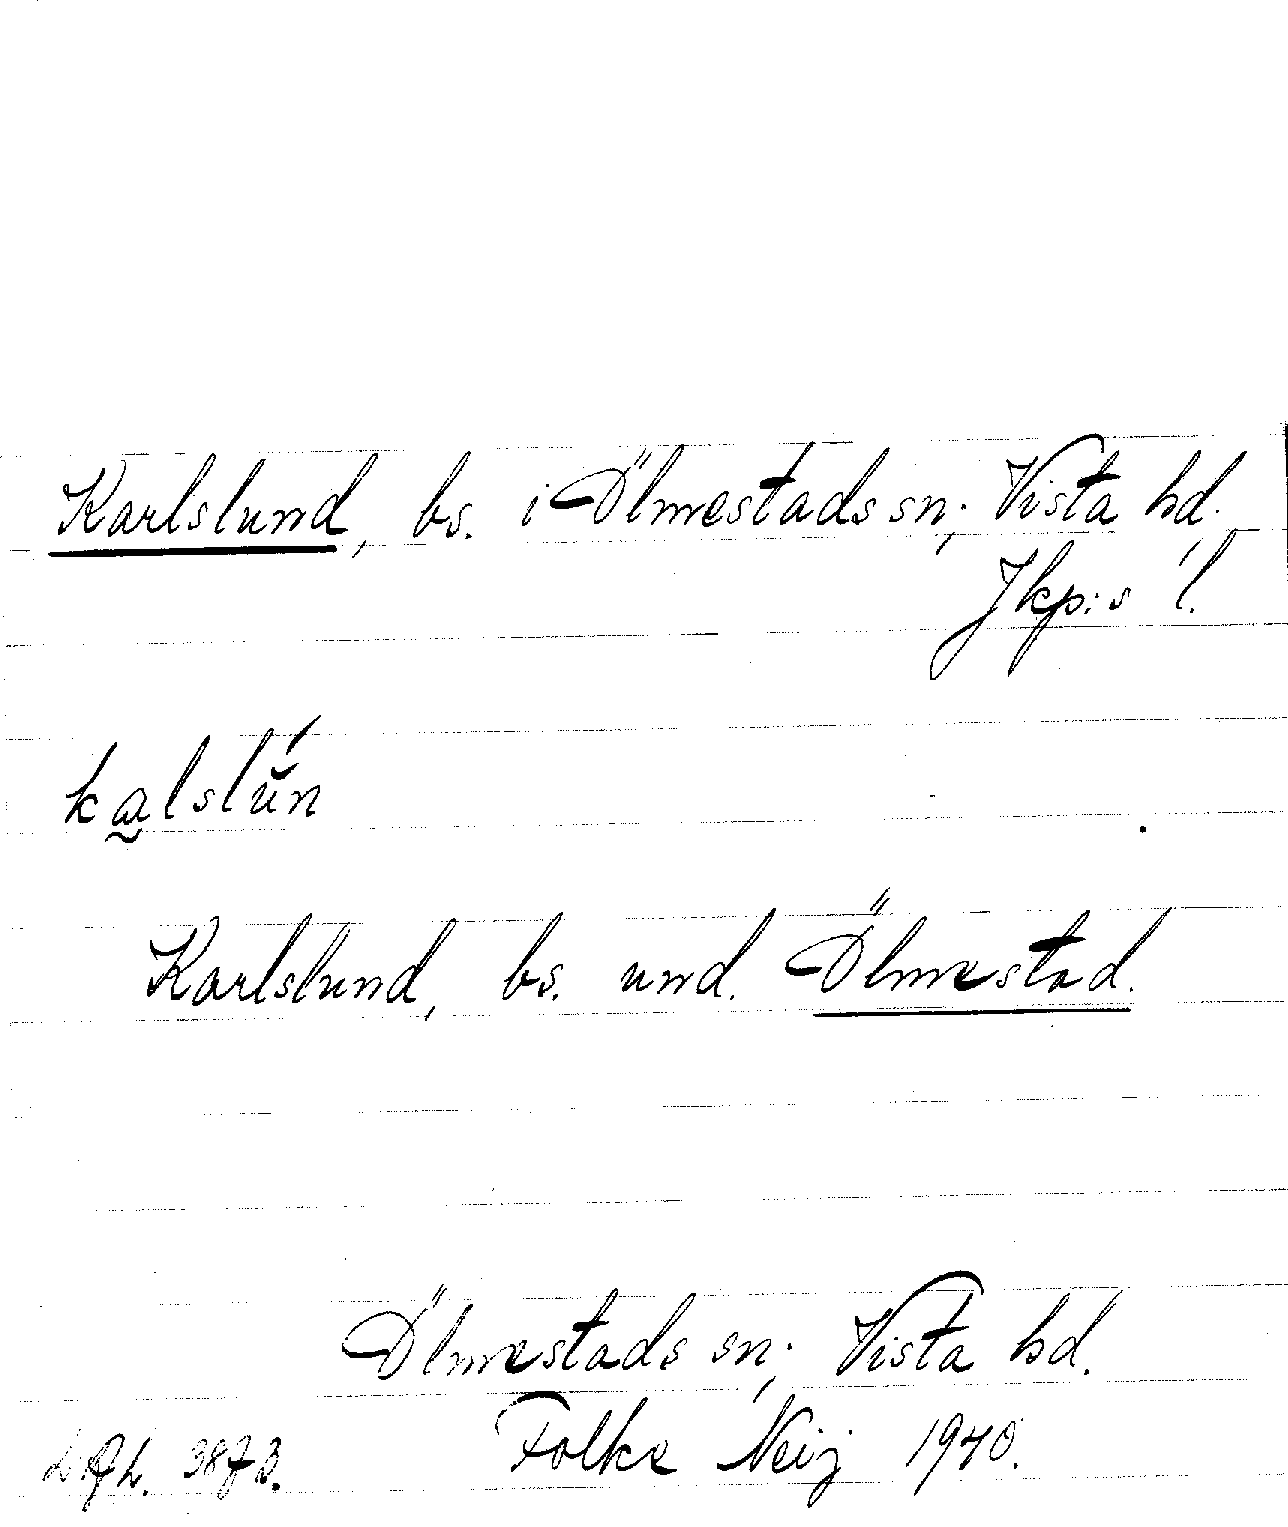 Karlslund, bs. i Ölmestads sn; Vista hd.
Jkp:s l.
kalslŭ́n
Karlslund, bs. und. Ölmestad.
Ölmestads sn; Vista hd.
Folke Neij 1940.